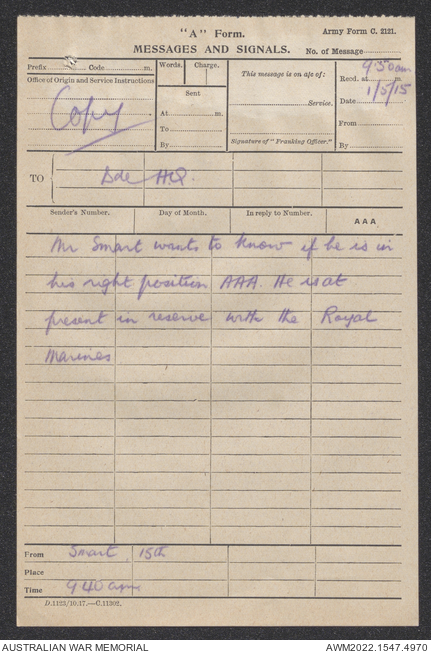 "A" Form.
Army Form C. 2121.
MESSAGES AND SIGNALS.
No. of Message
Prefix Code m.
Words. Charge.
This message is on a/c of:
Recd. at 9.50am m.
Office of Origin and Service Instructions
Copy
Sent
Date 1/5/15
At m.
Service.
From
To
By
Signature of "Franking Officer."
By
TO Bde HQ.
Sender's Number. Day of Month. In reply to Number. AAA
Mr Smart wants to know if he is in
his right position AAA. He is at
present in reserve with the Royal
Marines
From Smart 15th
Place
Time 9 40 am
D.1123/10.17.—C.11302.
AUSTRALIAN WAR MEMORIAL
AWM2022.1547.4970